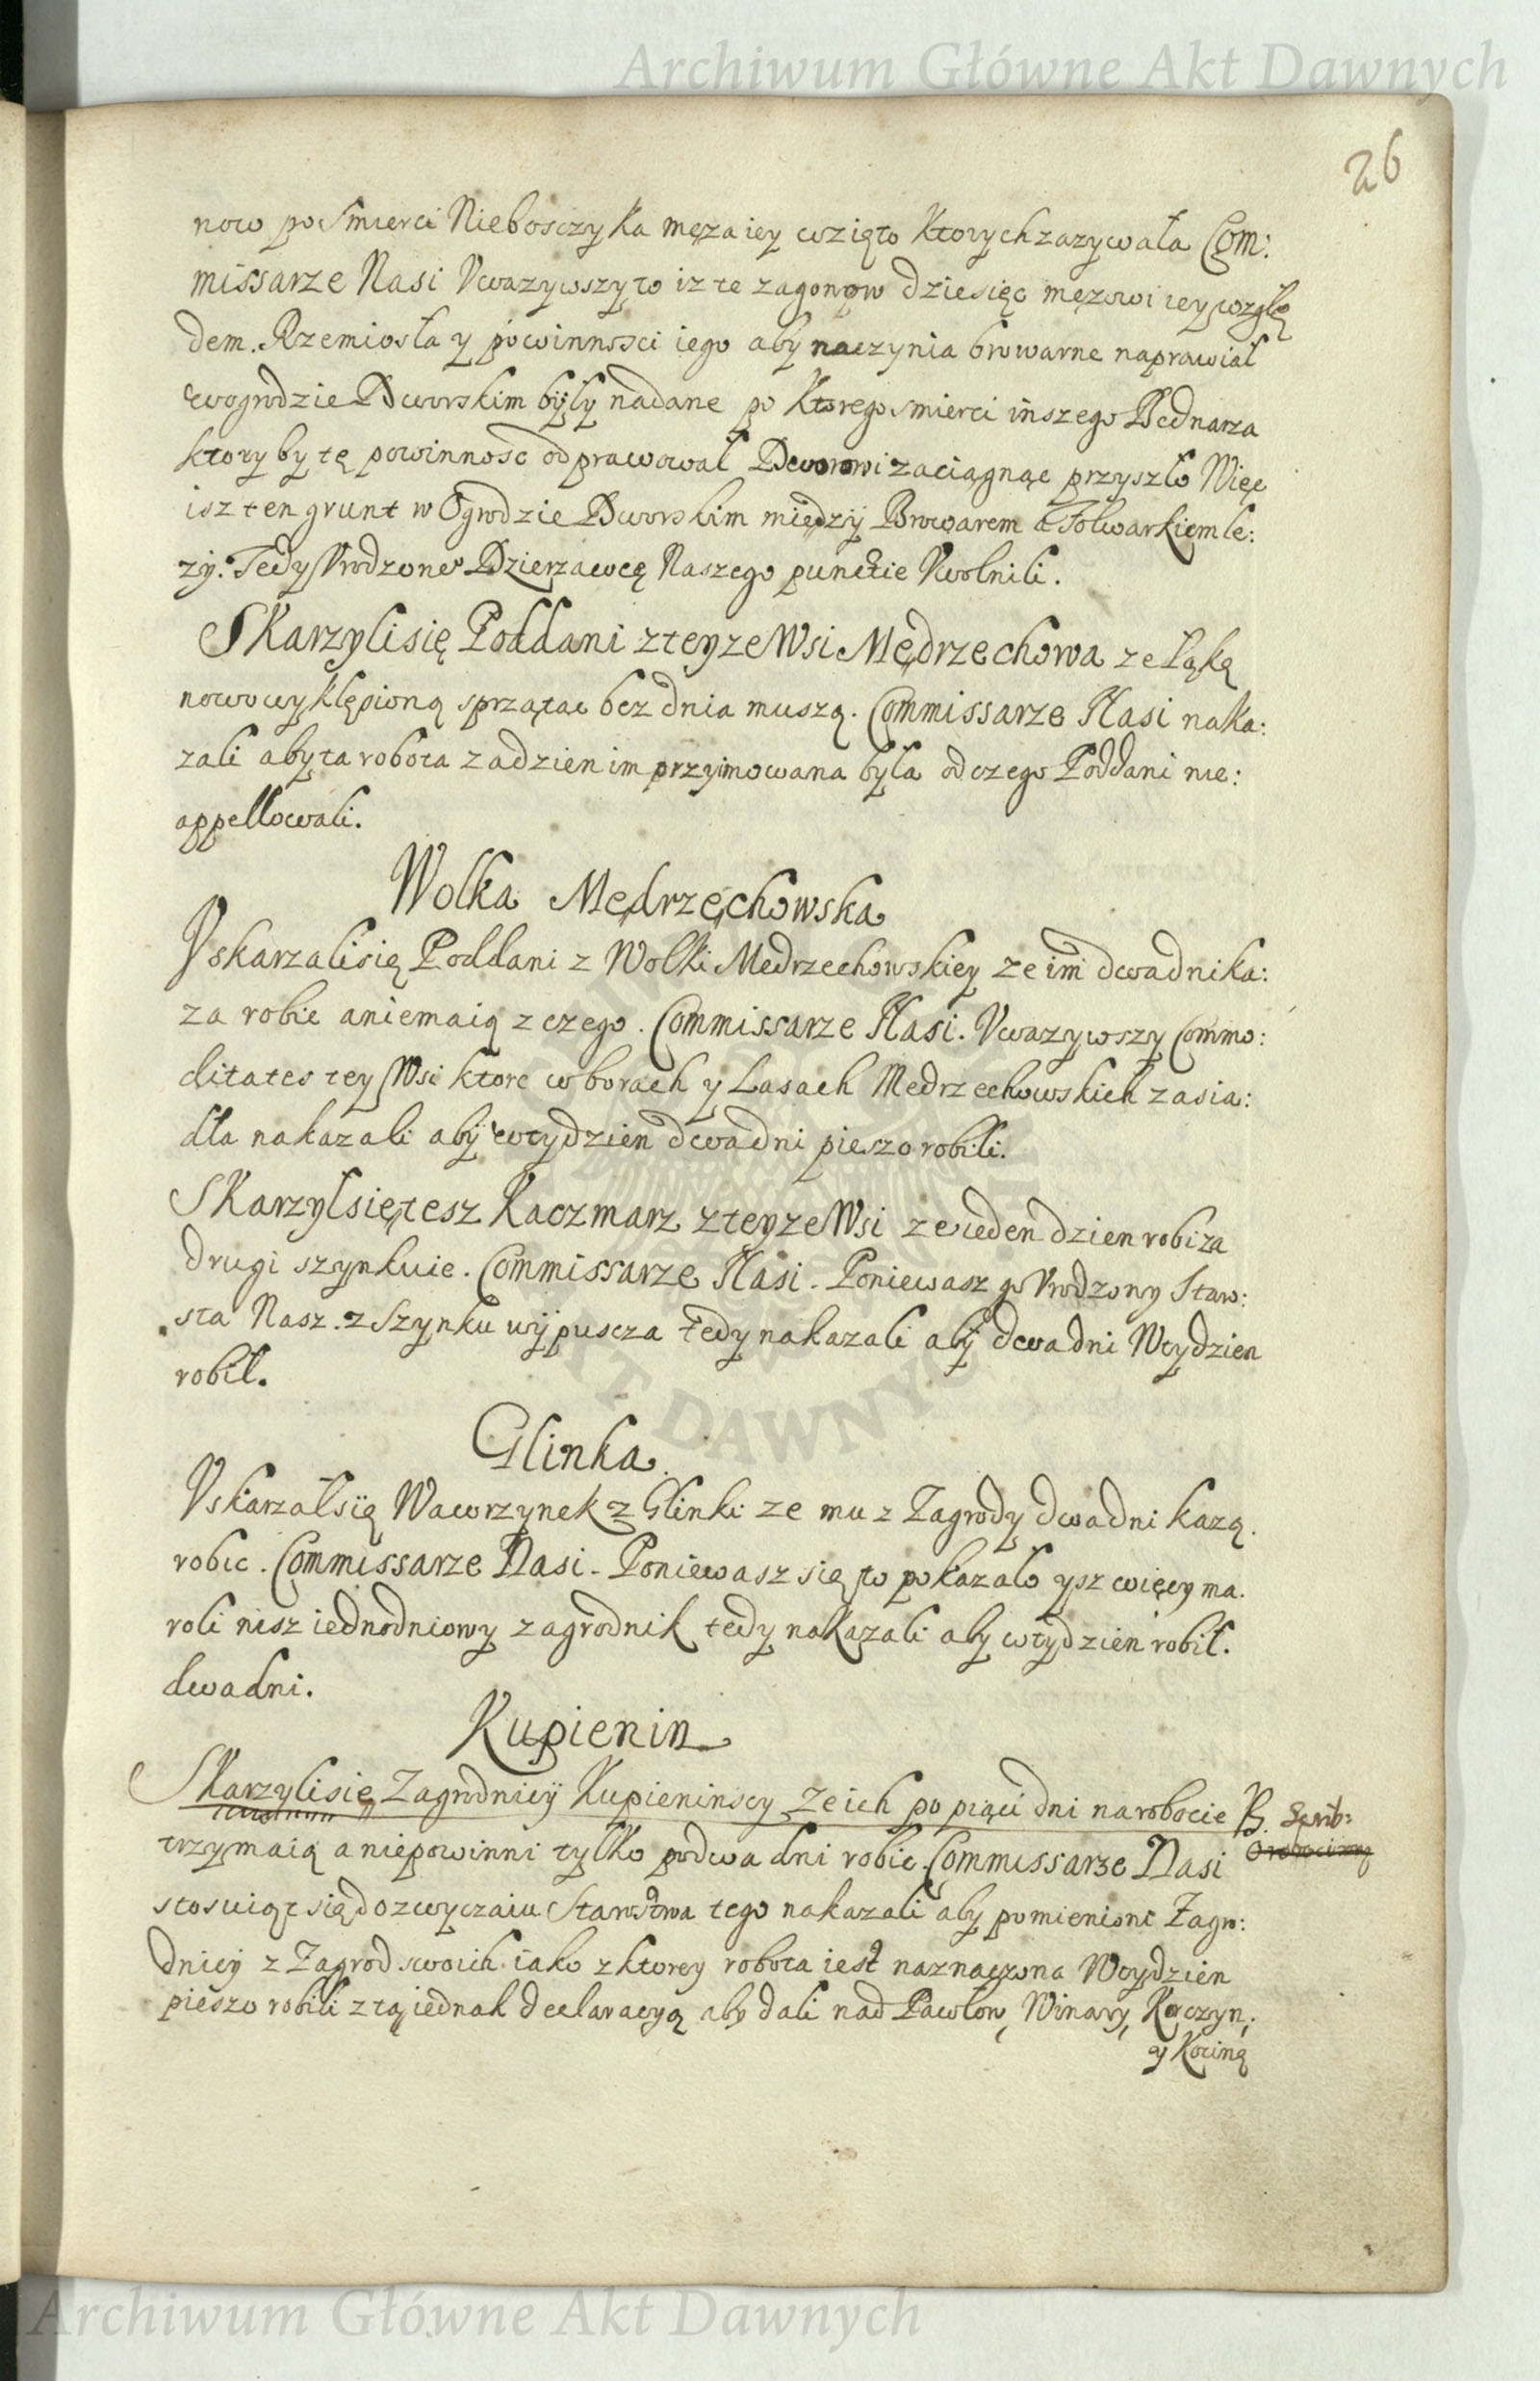 Archiwum Główne Akt Dawnych
26
now po Smierci Nieboszczyka męza iey wzięto Ktorych zazywała Com:
missarze Nasi Vwazywszy to iz te zagonow dziesięc męzowi iey wzglę
dem. Rzemiosła y powinnosci iego aby naczynia browarne naprawiał
wogrodzie Dworskim były nadane po Ktorego smierci inszego Bednarza
ktory by tę powinnosc odprawował Dworowi zaciągnąc przyszło Więc
isz ten grunt w Ogrodzie Dworskim między Browarem a Folwarkiem le:
zy. Tedy Vrodzone Dzierzawcę Naszego punctie Vwolnili.
Skarzyli się Poddani z teyze Wsi Mędrzechowa ze łąkę
nowo wyklępioną sprzątac bez dnia muszą. Commissarze Nasi naka:
zali aby ta robota za dzien im przyimowana była od czego Poddani nie:
appellowali.
Wolka Mędrzęchowska
Vskarzali się Poddani z Wolki Medrzechowskiey ze im dwa dni ka:
za robic a niemaią z czego. Commissarze Nasi. Vwazywszy Commo:
ditates tey Wsi ktore w borach y Lasach Medrzechowskich zasia:
dła nakazali aby w tydzien dwa dni pieszo robili.
Skarzył się tesz Kaczmarz z teyze Wsi ze ieden dzien robi za
drugi szynkuie. Commissarze Nasi. Poniewasz go Vrodzony Staro:
sta Nasz. z Szynku wypuscza tedy nakazali aby dwa dni W tydzien
robił.
Glinka
Vskarzał się Wawrzynek z Glinki ze mu z Zagrody dwa dni kazą.
robic. Commissarze Nasi. Poniewasz się to pokazało ysz więcy ma.
roli nisz iednodniowy zagrodnik tedy nakazali aby w tydzien robił.
dwa dni.
Kupienin
Skarzyli się Zagrodnicy Kupieninscy ze ich po piąci dni na robocie
trzymaią a niepowinni tylko po dwa dni robic. Commissarze Nasi
stosuiąc się do zwyczaiu Starostwa tego nakazali aby pomienione Zagro:
dnicy z Zagrod swoich iako z ktorey robota iest naznaczona W tydzien
pieszo robili z tą iednak declaracyą aby dali nad Pawłow, Winary, Korczyn,
y Kocinę
Archiwum Główne Akt Dawnych